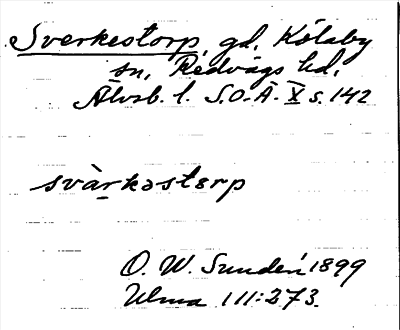 Sverkestorp, gd, Kölaby
sn, Redvägs hd,
Älvsb. l. S.O.Ä. X s. 142
svàrkəstɛrp
O. W. Sundén 1899
Ulma 111:273.